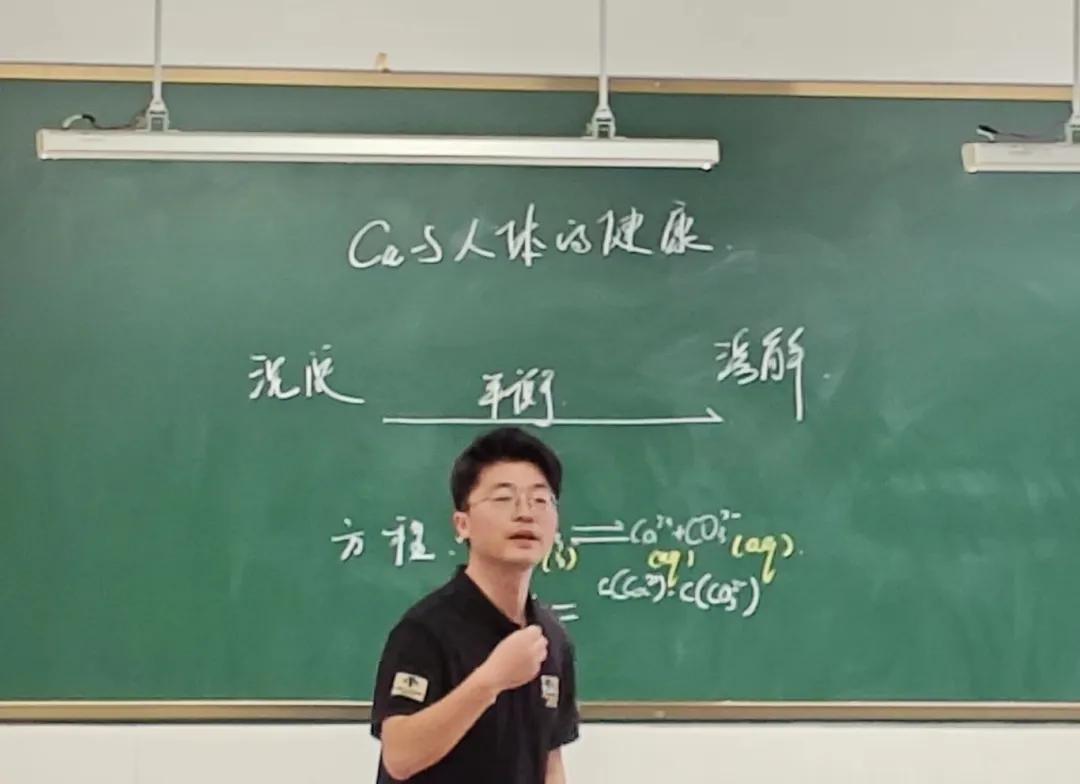 Ca与人体的健康.
沉淀 平衡. 溶解.
方程. (s) ⇌ Ca²⁺+CO₃²⁻
(aq) (aq).
= c(Ca²⁺)·c(CO₃²⁻)